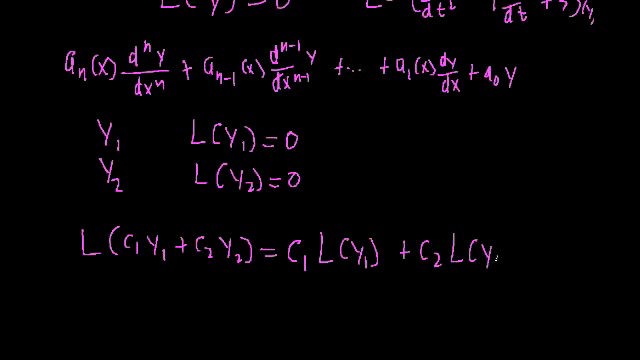 L(Y) = 0
a_n(x) d^n y/dx^n + a_{n-1}(x) d^{n-1} y/dx^{n-1} + ... + a_1(x) dy/dx + a_0 y
Y_1 L(Y_1) = 0
Y_2 L(Y_2) = 0
L(C_1 Y_1 + C_2 Y_2) = C_1 L(Y_1) + C_2 L(Y